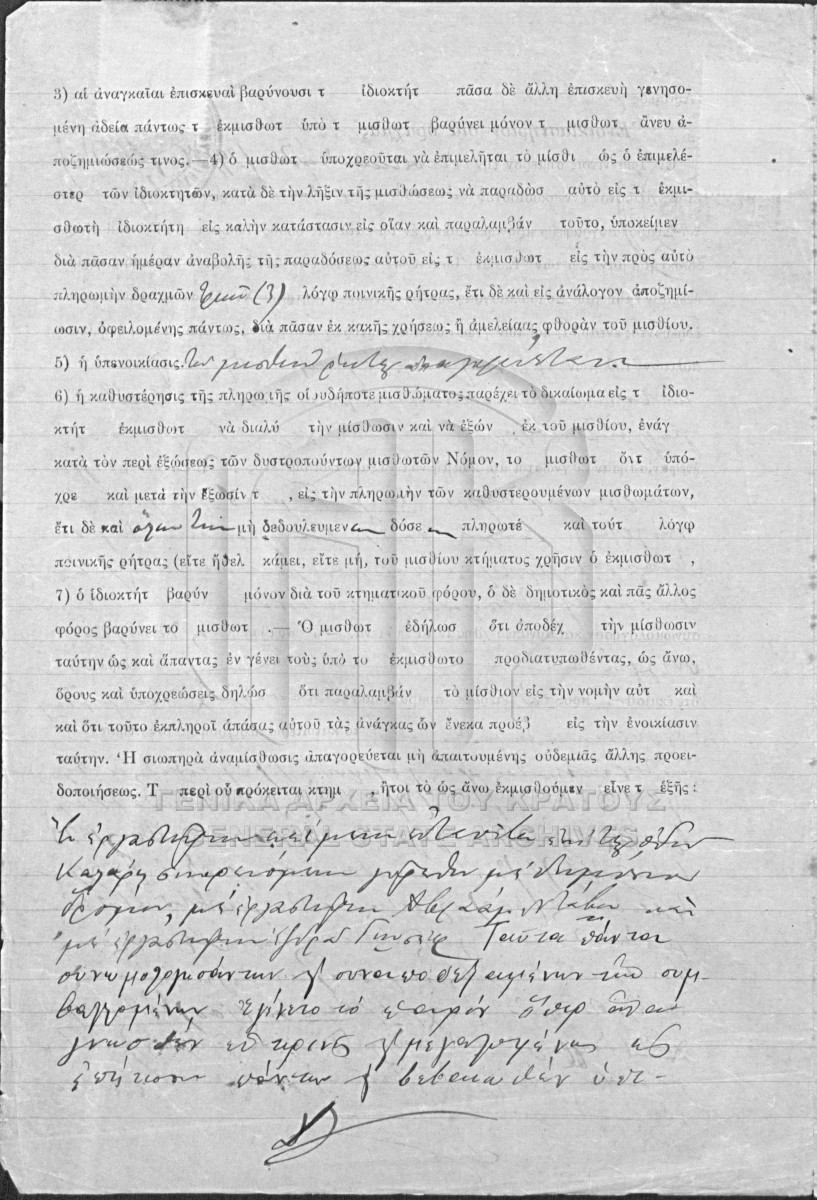 3) αἱ ἀναγκαῖαι ἐπισκευαὶ βαρύνουσι τ ἰδιοκτήτ πᾶσα δὲ ἄλλη ἐπισκευὴ γενησο-
μένη ἀδείᾳ πάντως τ ἐκμισθωτ ὑπὸ τ μισθωτ βαρύνει μόνον τ μισθωτ ἄνευ ἀ-
ποζημιώσεώς τινος.—4) ὁ μισθωτ ὑποχρεοῦται νὰ ἐπιμελῆται τὸ μίσθι ὡς ὁ ἐπιμελέ-
στερ τῶν ἰδιοκτητῶν, κατὰ δὲ τὴν λῆξιν τῆς μισθώσεως νὰ παραδὼσ αὐτὸ εἰς τ ἐκμι-
σθωτὴ ἰδιοκτήτη εἰς καλὴν κατάστασιν εἰς οἵαν καὶ παραλαμβάν τοῦτο, ὑποκείμεν
διὰ πᾶσαν ἡμέραν ἀναβολῆς τῆς παραδόσεως αὐτοῦ εἰς τ ἐκμισθωτ εἰς τὴν πρὸς αὐτὸ
πληρωμὴν δραχμῶν τριῶν (3) λόγῳ ποινικῆς ρήτρας, ἔτι δὲ καὶ εἰς ἀνάλογον ἀποζημί-
ωσιν, ὀφειλομένης πάντως, διὰ πᾶσαν ἐκ κακῆς χρήσεως ἢ ἀμελείαας φθορὰν τοῦ μισθίου.
5) ἡ ὑπενοικίασις τοῦ μισθίου ρητῶς ἀπαγορεύεται
6) ἡ καθυστέρησις τῆς πληρωμῆς οἱουδήποτε μισθώματος παρέχει τὸ δικαίωμα εἰς τ ἰδιο-
κτήτ ἐκμισθωτ νὰ διαλύ τὴν μίσθωσιν καὶ νὰ ἐξών ἐκ τοῦ μισθίου, ἐνάγ
κατὰ τὸν περὶ ἐξώσεως τῶν δυστροπούντων μισθωτῶν Νόμον, το μισθωτ ὄντ ὑπό-
χρε καὶ μετὰ τὴν ἔξωσίν τ , εἰς τὴν πληρωμὴν τῶν καθυστερουμένων μισθωμάτων,
ἔτι δὲ καὶ ὅλων τῶν μὴ δεδουλευμεν δόσε πληρωτέ καὶ τούτ λόγῳ
ποινικῆς ρήτρας (εἴτε ἤθελ κάμει, εἴτε μή, τοῦ μισθίου κτήματος χρῆσιν ὁ ἐκμισθωτ ,
7) ὁ ἰδιοκτήτ βαρύν μόνον διὰ τοῦ κτηματικοῦ φόρου, ὁ δὲ δημοτικὸς καὶ πᾶς ἄλλος
φόρος βαρύνει το μισθωτ .— Ὁ μισθωτ ἐδήλωσ ὅτι ἀποδέχ τὴν μίσθωσιν
ταύτην ὡς καὶ ἅπαντας ἐν γένει τοὺς ὑπὸ το ἐκμισθωτο προδιατυπωθέντας, ὡς ἄνω,
ὅρους καὶ ὑποχρεώσεις δηλώσ ὅτι παραλαμβάν τὸ μίσθιον εἰς τὴν νομὴν αὑτ καὶ
καὶ ὅτι τοῦτο ἐκπληροῖ ἁπάσας αὐτοῦ τὰς ἀνάγκας ὧν ἕνεκα προέβ εἰς τὴν ἐνοικίασιν
ταύτην. Ἡ σιωπηρὰ ἀναμίσθωσις ἀπαγορεύεται μὴ ἀπαιτουμένης οὐδεμιᾶς ἄλλης προει-
δοποιήσεως. Τ περὶ οὗ πρόκειται κτημ , ἤτοι τὸ ὡς ἄνω ἐκμισθούμεν εἶνε τ ἑξῆς :
Ἓν ἐργαστήριον κείμενον ὁδὸν
συνορευόμενον γύρωθεν μὲ δημόσιον
δρόμον, μὲ ἐργαστήριον Ἀβραὰμ καὶ
μὲ ἐργαστήριον Ταῦτα πάντα
συνωμολογησάντων καὶ συναποδεξαμένων τῶν συμ-
βαλλομένων ἐγένετο τὸ παρὸν ὅπερ
εὐκρινῶς καὶ μεγαλοφώνως εἰς
ἐπήκοον πάντων καὶ βεβαιωθὲν ὑπ-
ΓΕΝΙΚΑ ΑΡΧΕΙΑ ΤΟΥ ΚΡΑΤΟΥΣ
GENERAL STATE ARCHIVES